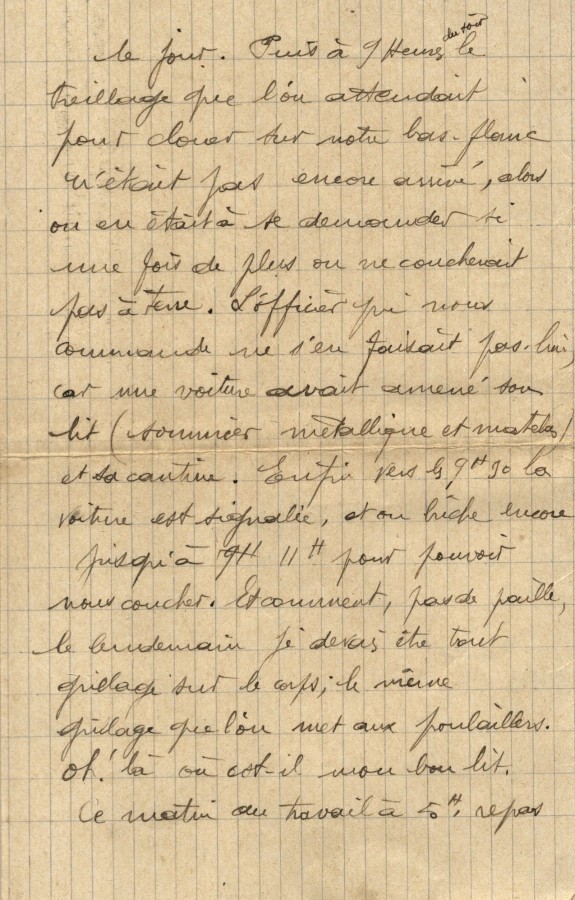 le jour. Puis à 9 Heures du soir le
treillage que l'on attendait
pour clouer sur notre bas-flanc
n'était pas encore arrivé, alors
on en était à se demander si
une fois de plus on ne coucherait
pas à terre. L'officier qui nous
commande ne s'en faisait pas lui,
car une voiture avait amené son
lit (sommier métallique et matelas)
et sa cantine. Enfin vers les 9H30 la
voiture est signalée, et on bûche encore
jusqu'à 11H pour pouvoir
nous coucher. Et comment, pas de paille,
le lendemain je devais être tout
grillagé sur le corps; le même
grillage que l'on met aux poulaillers.
Oh! là où est-il mon bon lit.
Ce matin au travail à 5H, repas